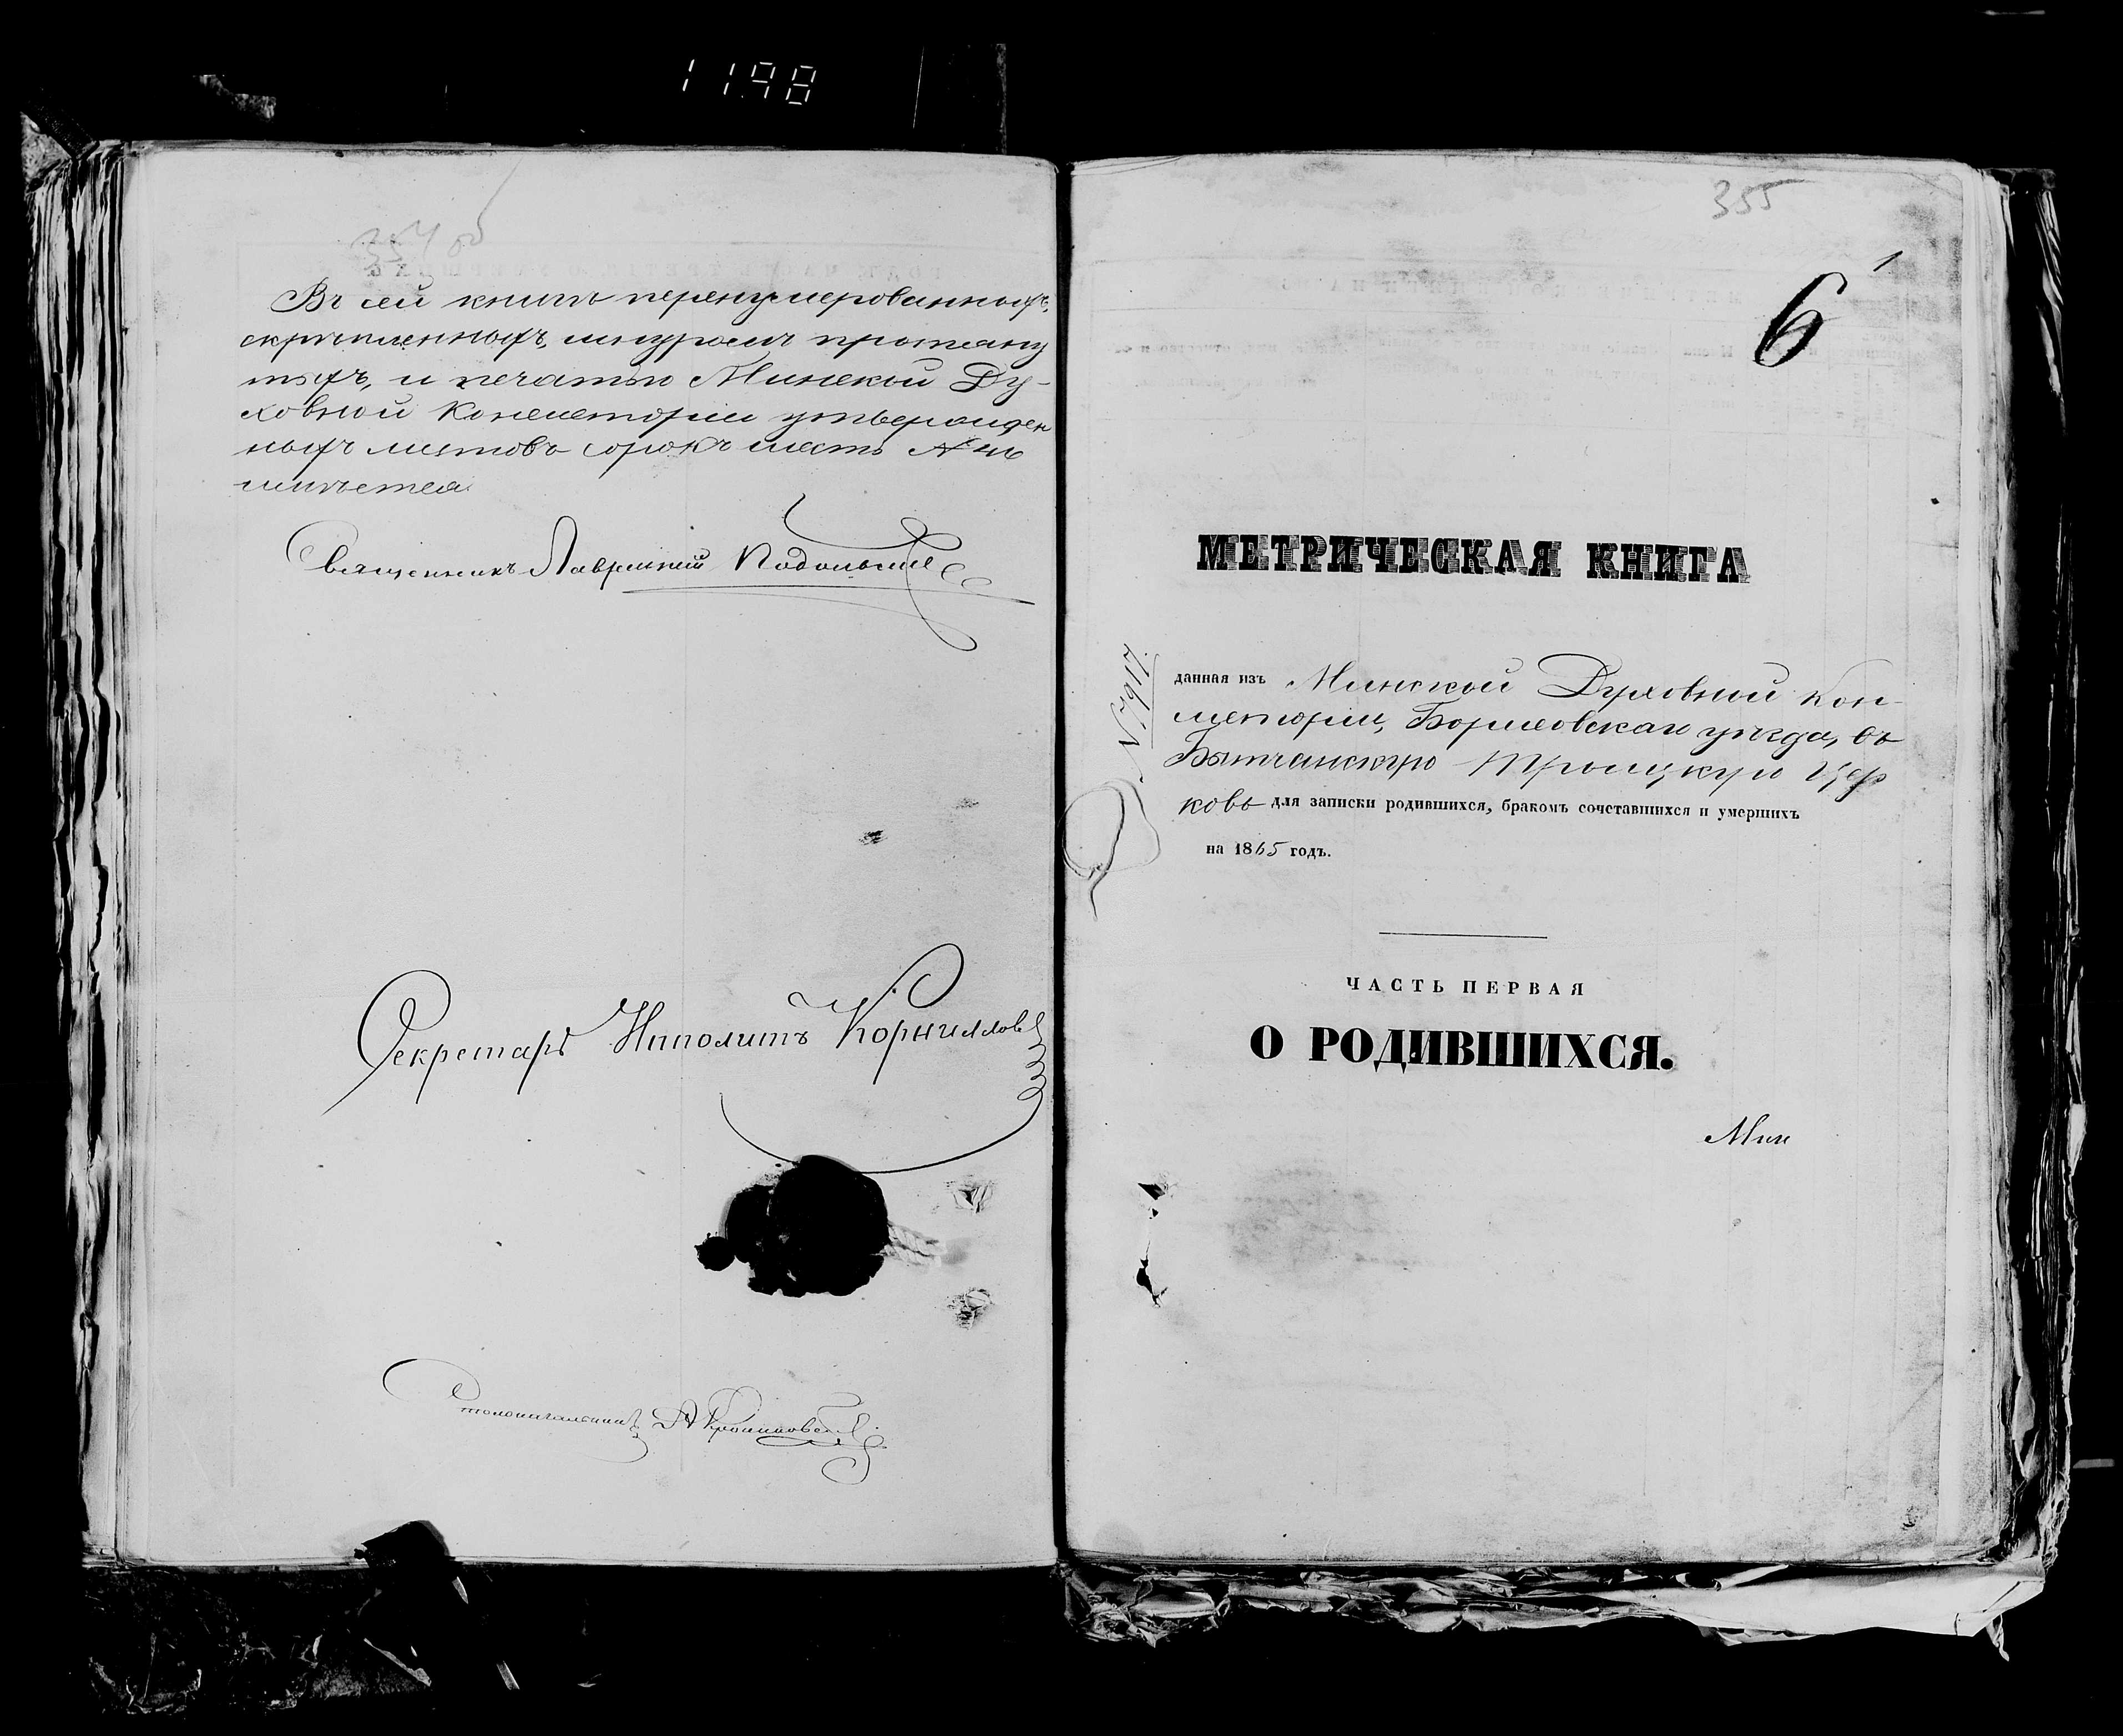 1198
354 об
Въ сей книгѣ перенумерованныхъ,
скрѣпленныхъ, шнуромъ протяну
тыхъ, и печатью Минской Ду-
ховной Консисторіи утвержден
ныхъ листовъ сорокъ шесть
имѣется
Священникъ Лаврентій Подольскій
Секретарь Ипполитъ Корниловъ
Столоначальникъ
355
1
6
МЕТРИЧЕСКАЯ КНИГА
№ 7917.
данная изъ Минской Духовной Кон-
систоріи, Борисовскаго уѣзда, въ
Бытчанскую Троицкую Цер
ковь для записки родившихся, бракомъ сочетавшихся и умершихъ
на 1865 годъ.
ЧАСТЬ ПЕРВАЯ
О РОДИВШИХСЯ.
Мин